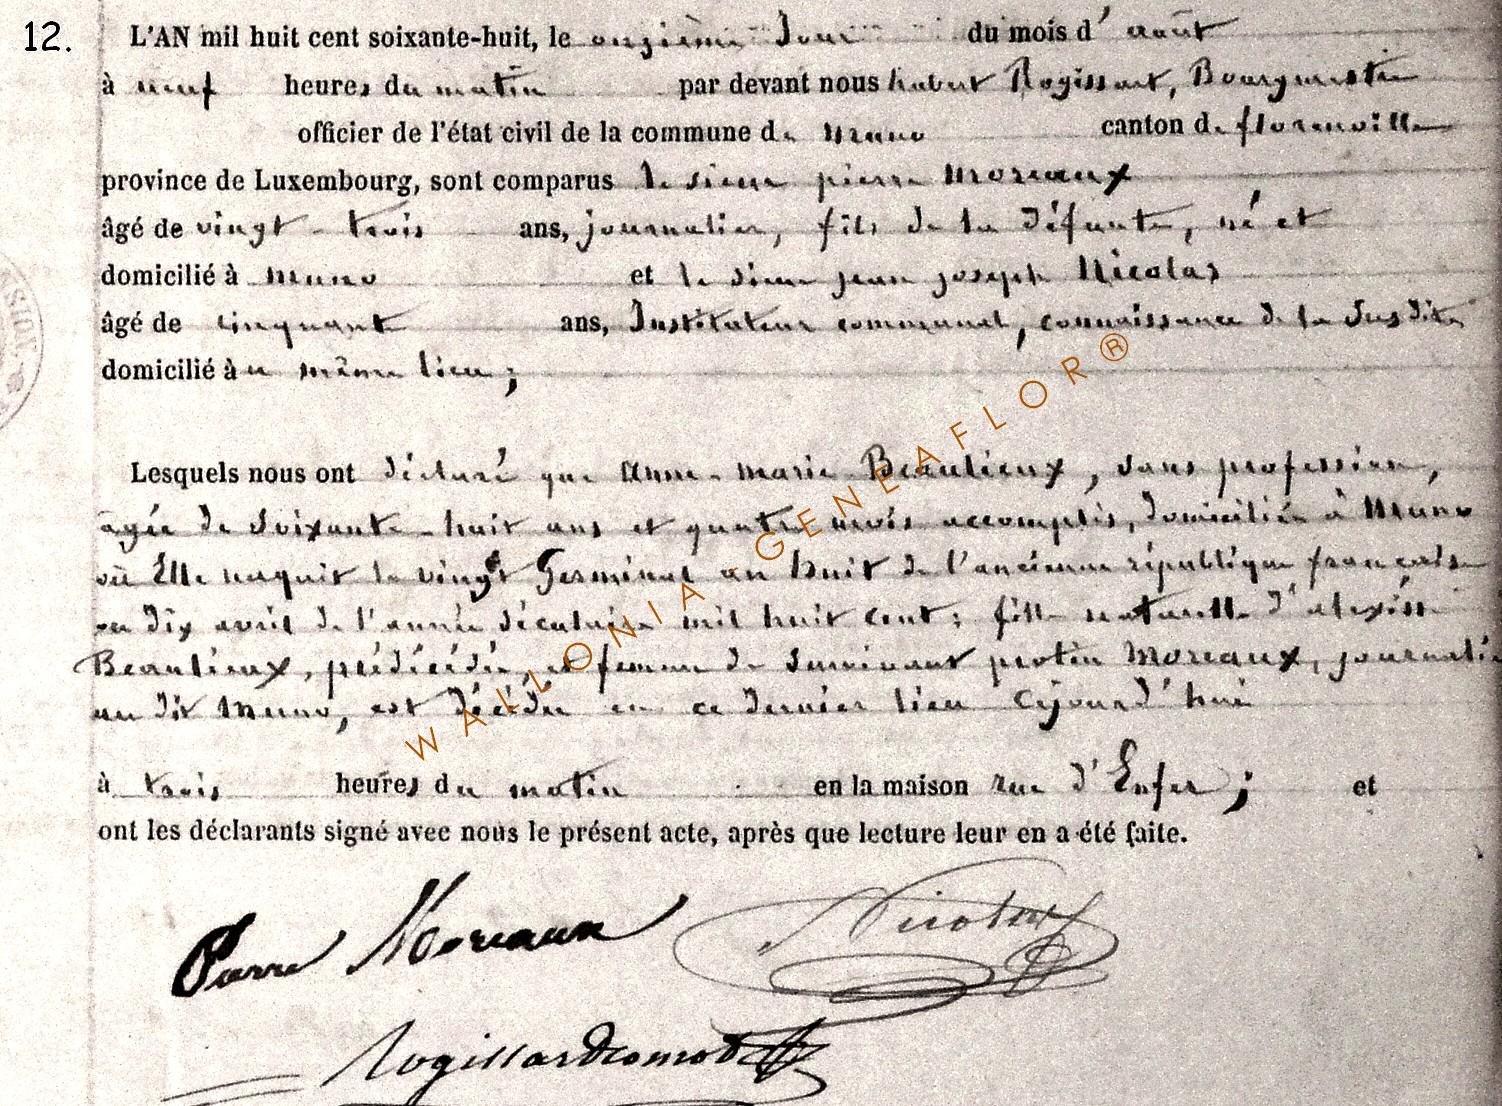 12.
L'AN mil huit cent soixante-huit, le onzième Jour du mois d'août
à neuf heures du matin par devant nous hubert Rogissart, Bourgmestre
officier de l'état civil de la commune de Muno canton de florenville
province de Luxembourg, sont comparus le sieur pierre Moreaux
âgé de vingt-trois ans, journalier, fils de la défunte, né et
domicilié à Muno et le sieur jean joseph Nicolas
âgé de cinquante ans, Instituteur communal, connaissance de la susdite
domicilié au même lieu;
Lesquels nous ont déclaré que Anne-marie Beaulieux, sans profession,
agée de soixante-huit ans et quatre mois accomplis, domiciliée à Muno
où Elle naquit le vingt Germinal an huit de l'ancienne république française
ou dix avril de l'année séculaire mil huit cent; fille naturelle d'alexisse
Beaulieux, prédécédée, et femme de survivant protin Moreaux, journalier
au dit Muno, est décédée en ce dernier lieu cejourd'hui
à trois heures du matin en la maison rue d'Enfer; et
ont les déclarants signé avec nous le présent acte, après que lecture leur en a été faite.
Pierre Moreaux Nicolas
WALLONIA-GENEAFLOR®